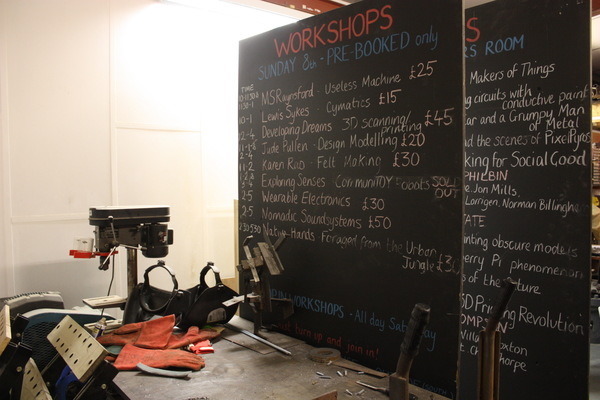 WORKSHOPS
SUNDAY 8th - PRE-BOOKED only
TIME
MSRaynsford - Useless Machine £25
Lewis Sykes - Cymatics £15
Developing Dreams 3D scanning/ printing £45
Jude Pullen - Design Modelling £20
Karen Rao - Felt Making £30
Exploring Senses - CommuniTOY Robots SOLD OUT
2-5 Wearable Electronics £30
2-5 Nomadic Soundsystems £50
Native Hands - Foraged from the Urban
Jungle
WORKSHOPS - All day Saturday
turn up and join in!
S
RS ROOM
Makers of Things
g circuits with
conductive paint
ar and a Grumpy Man
of Metal
nd the scenes of PixelPyros
king for Social Good
PHILBIN
e. Jon Mills,
Lorrigen, Norman Billingha
TATE
nting obscure models
erry Pi phenomenon
s of the future
3D Printing Revolution'
OMPS
Willi oxton
ch thorpe